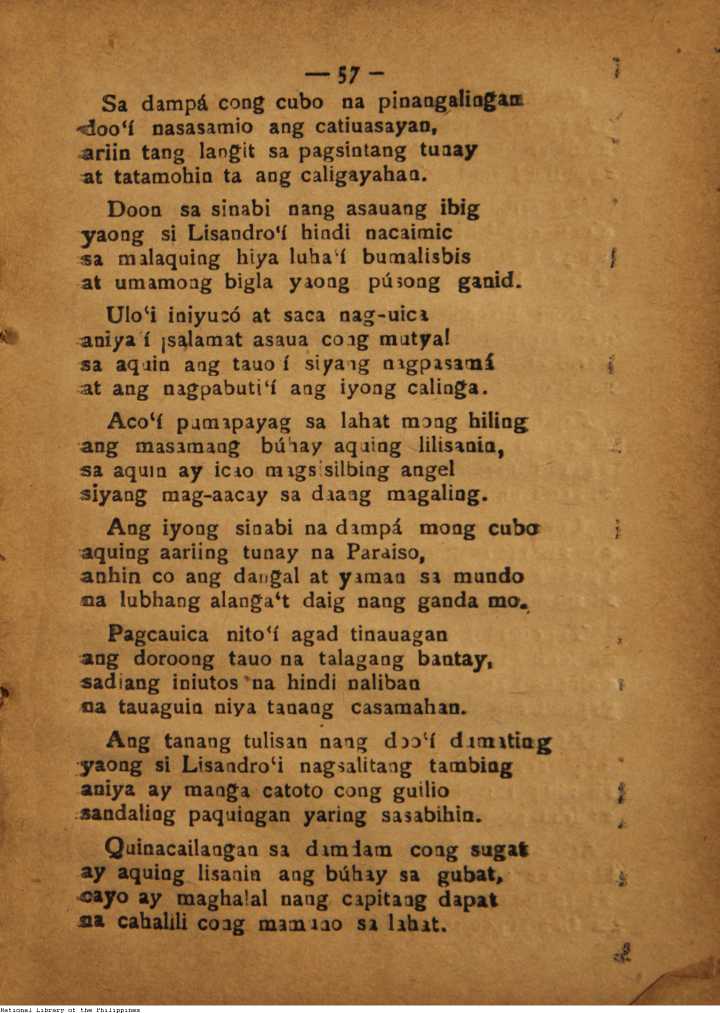 — 57 —
Sa dampá cong cubo na pinangalingan
doo‘í nasasamio ang catiuasayan,
ariin tang langit sa pagsintang tunay
at tatamohin ta ang caligayahan.
Doon sa sinabi nang asauang ibig
yaong si Lisandro‘í hindi nacaimic
sa malaquing hiya luha‘í bumalisbis
at umamong bigla yaong púsong ganid.
Ulo‘i iniyucó at saca nag-uica
aniya í ¡salamat asaua cong mutya!
sa aquin ang tauo í siyang nagpasamá
at ang nagpabuti‘í ang iyong calinga.
Aco‘í pumapayag sa lahat mong hiling
ang masamang búhay aquing lilisanin,
sa aquin ay icao magsisilbing angel
siyang mag-aacay sa daang magaling.
Ang iyong sinabi na dampá mong cubo
aquing aariing tunay na Paraiso,
anhin co ang dangal at yaman sa mundo
na lubhang alanga‘t daig nang ganda mo.
Pagcauica nito‘í agad tinauagan
ang doroong tauo na talagang bantay,
sadiang iniutos na hindi naliban
na tauaguin niya tanang casamahan.
Ang tanang tulisan nang doo‘í dumating
yaong si Lisandro‘i nagsalitang tambing
aniya ay manga catoto cong guilio
sandaling paquingan yaring sasabihin.
Quinacailangan sa damdam cong sugat
ay aquing lisanin ang búhay sa gubat,
cayo ay maghalal nang capitang dapat
na cahalili cong mamuno sa lahat.
National Library of the Philippines